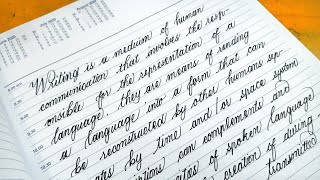 Writing is a medium of human
communication that involves the resp-
onsible for the representation of a
language. they are means of rending
a language into a form that can
be reconstructed by other humans sep-
by time and/or space system
can complements and
of spoken language
creation of
transmitted